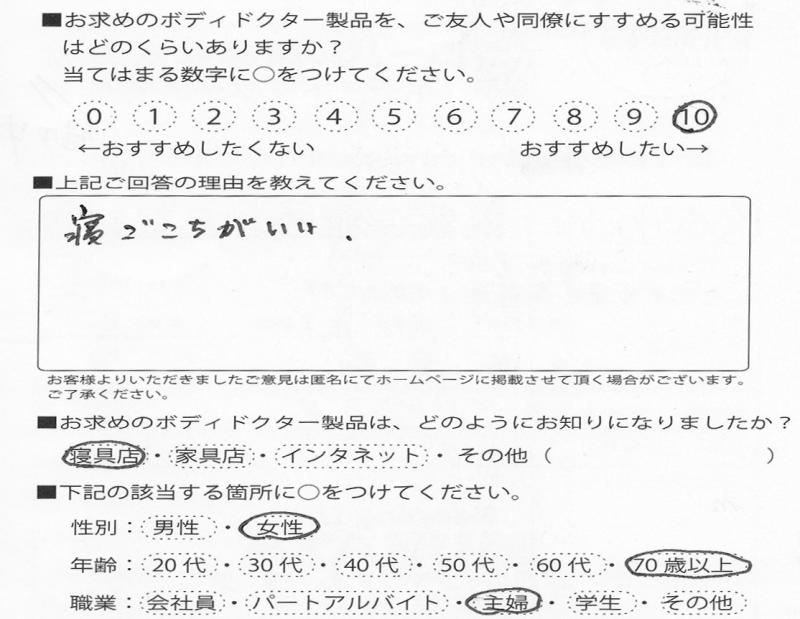 ■お求めのボディドクター製品を、ご友人や同僚にすすめる可能性
はどのくらいありますか？
当てはまる数字に○をつけてください。
0 1 2 3 4 5 6 7 8 9 10
←おすすめしたくない おすすめしたい→
■上記ご回答の理由を教えてください。
寝ごこちがいい.
お客様よりいただきましたご意見は匿名にてホームページに掲載させて頂く場合がございます。
ご了承ください。
■お求めのボディドクター製品は、どのようにお知りになりましたか？
寝具店・家具店・インタネット・その他（ ）
■下記の該当する箇所に○をつけてください。
性別：男性・女性
年齢：20代・30代・40代・50代・60代・70歳以上
職業：会社員・パートアルバイト・主婦・学生・その他